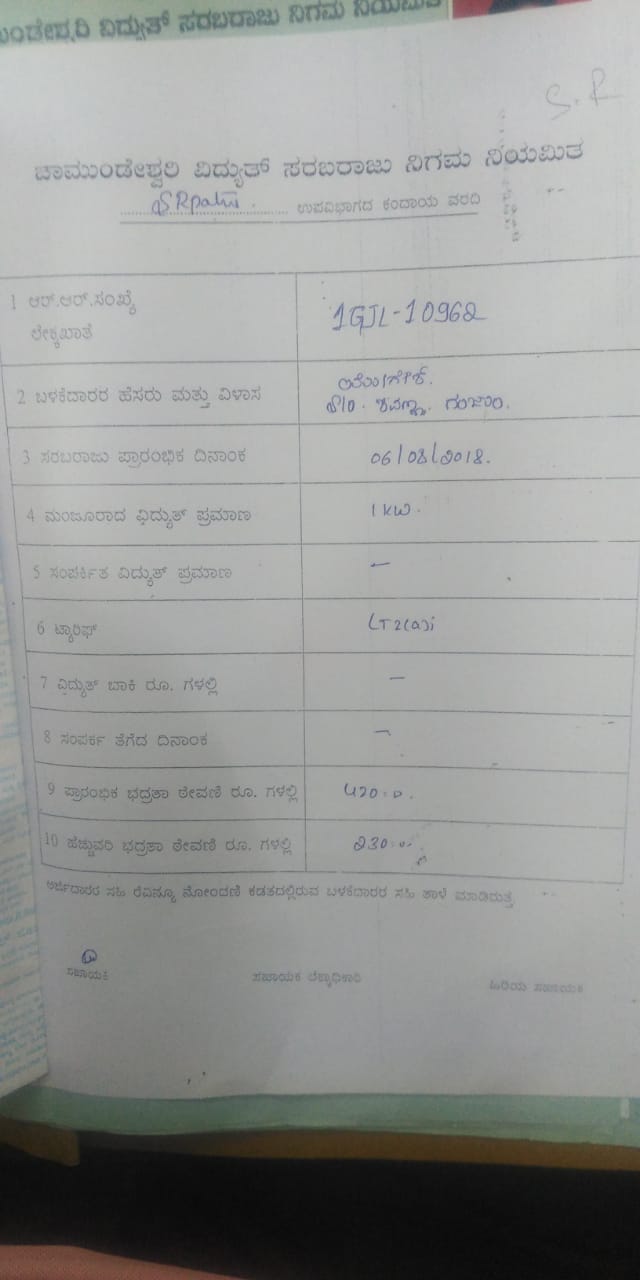 ವಿದ್ಯುತ್ ಸರಬರಾಜು ನಿಗಮ ನಿಯಮಿತ
S.R
ಚಾಮುಂಡೇಶ್ವರಿ ವಿದ್ಯುತ್ ಸರಬರಾಜು ನಿಗಮ ನಿಯಮಿತ
ಉಪವಿಭಾಗದ ಕಂದಾಯ ವರದಿ
1 ಆರ್.ಆರ್.ಸಂಖ್ಯೆ 1GJL-10962
ಲೆಕ್ಕಖಾತೆ
2 ಬಳಕೆದಾರರ ಹೆಸರು ಮತ್ತು ವಿಳಾಸ
S/o. ಶಿವಣ್ಣ. ಗಂಜಾಂ.
3 ಸರಬರಾಜು ಪ್ರಾರಂಭಿಕ ದಿನಾಂಕ 06/08/2018.
4 ಮಂಜೂರಾದ ವಿದ್ಯುತ್ ಪ್ರಮಾಣ 1 KW.
5 ಸಂಪರ್ಕಿತ ವಿದ್ಯುತ್ ಪ್ರಮಾಣ —
6 ಟ್ಯಾರಿಫ್ LT2(a)i
7 ವಿದ್ಯುತ್ ಬಾಕಿ ರೂ. ಗಳಲ್ಲಿ —
8 ಸಂಪರ್ಕ ತೆಗೆದ ದಿನಾಂಕ —
9 ಪ್ರಾರಂಭಿಕ ಭದ್ರತಾ ಠೇವಣಿ ರೂ. ಗಳಲ್ಲಿ 420.0.
10 ಹೆಚ್ಚುವರಿ ಭದ್ರತಾ ಠೇವಣಿ ರೂ. ಗಳಲ್ಲಿ 230.0
ಅರ್ಜಿದಾರರ ಸಹಿ ರೆವಿನ್ಯೂ ನೋಂದಣಿ ಕಡತದಲ್ಲಿರುವ ಬಳಕೆದಾರರ ಸಹಿ ತಾಳೆ ಮಾಡಿರುತ್ತೆ
ಸಹಾಯಕಿ ಸಹಾಯಕ ಲೆಕ್ಕಾಧಿಕಾರಿ ಹಿರಿಯ ಸಹಾಯಕ